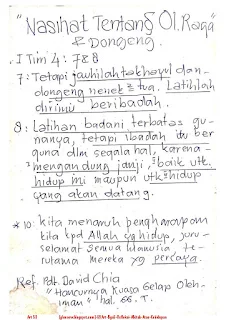 "Nasihat Tentang Ol. Raga"
& Dongeng.
I Tim 4: 7&8
7: Tetapi jauhilah takhayul dan-
dongeng nenek² tua. Latihlah
dirimu beribadah.
8: Latihan badani terbatas gu-
nanya, tetapi ibadah itu ber
guna dlm segala hal, karena-
mengandung janji, baik utk.
hidup ini maupun utk hidup
yang akan datang.
*10: kita menaruh pengharapan
kita kpd Allah yg hidup, juru-
selamat semua manusia, te-
rutama mereka yg percaya.
Ref. Pdt. David Chia
"Hancurnya Kuasa Gelap Oleh-
iman" hal. 66. T.